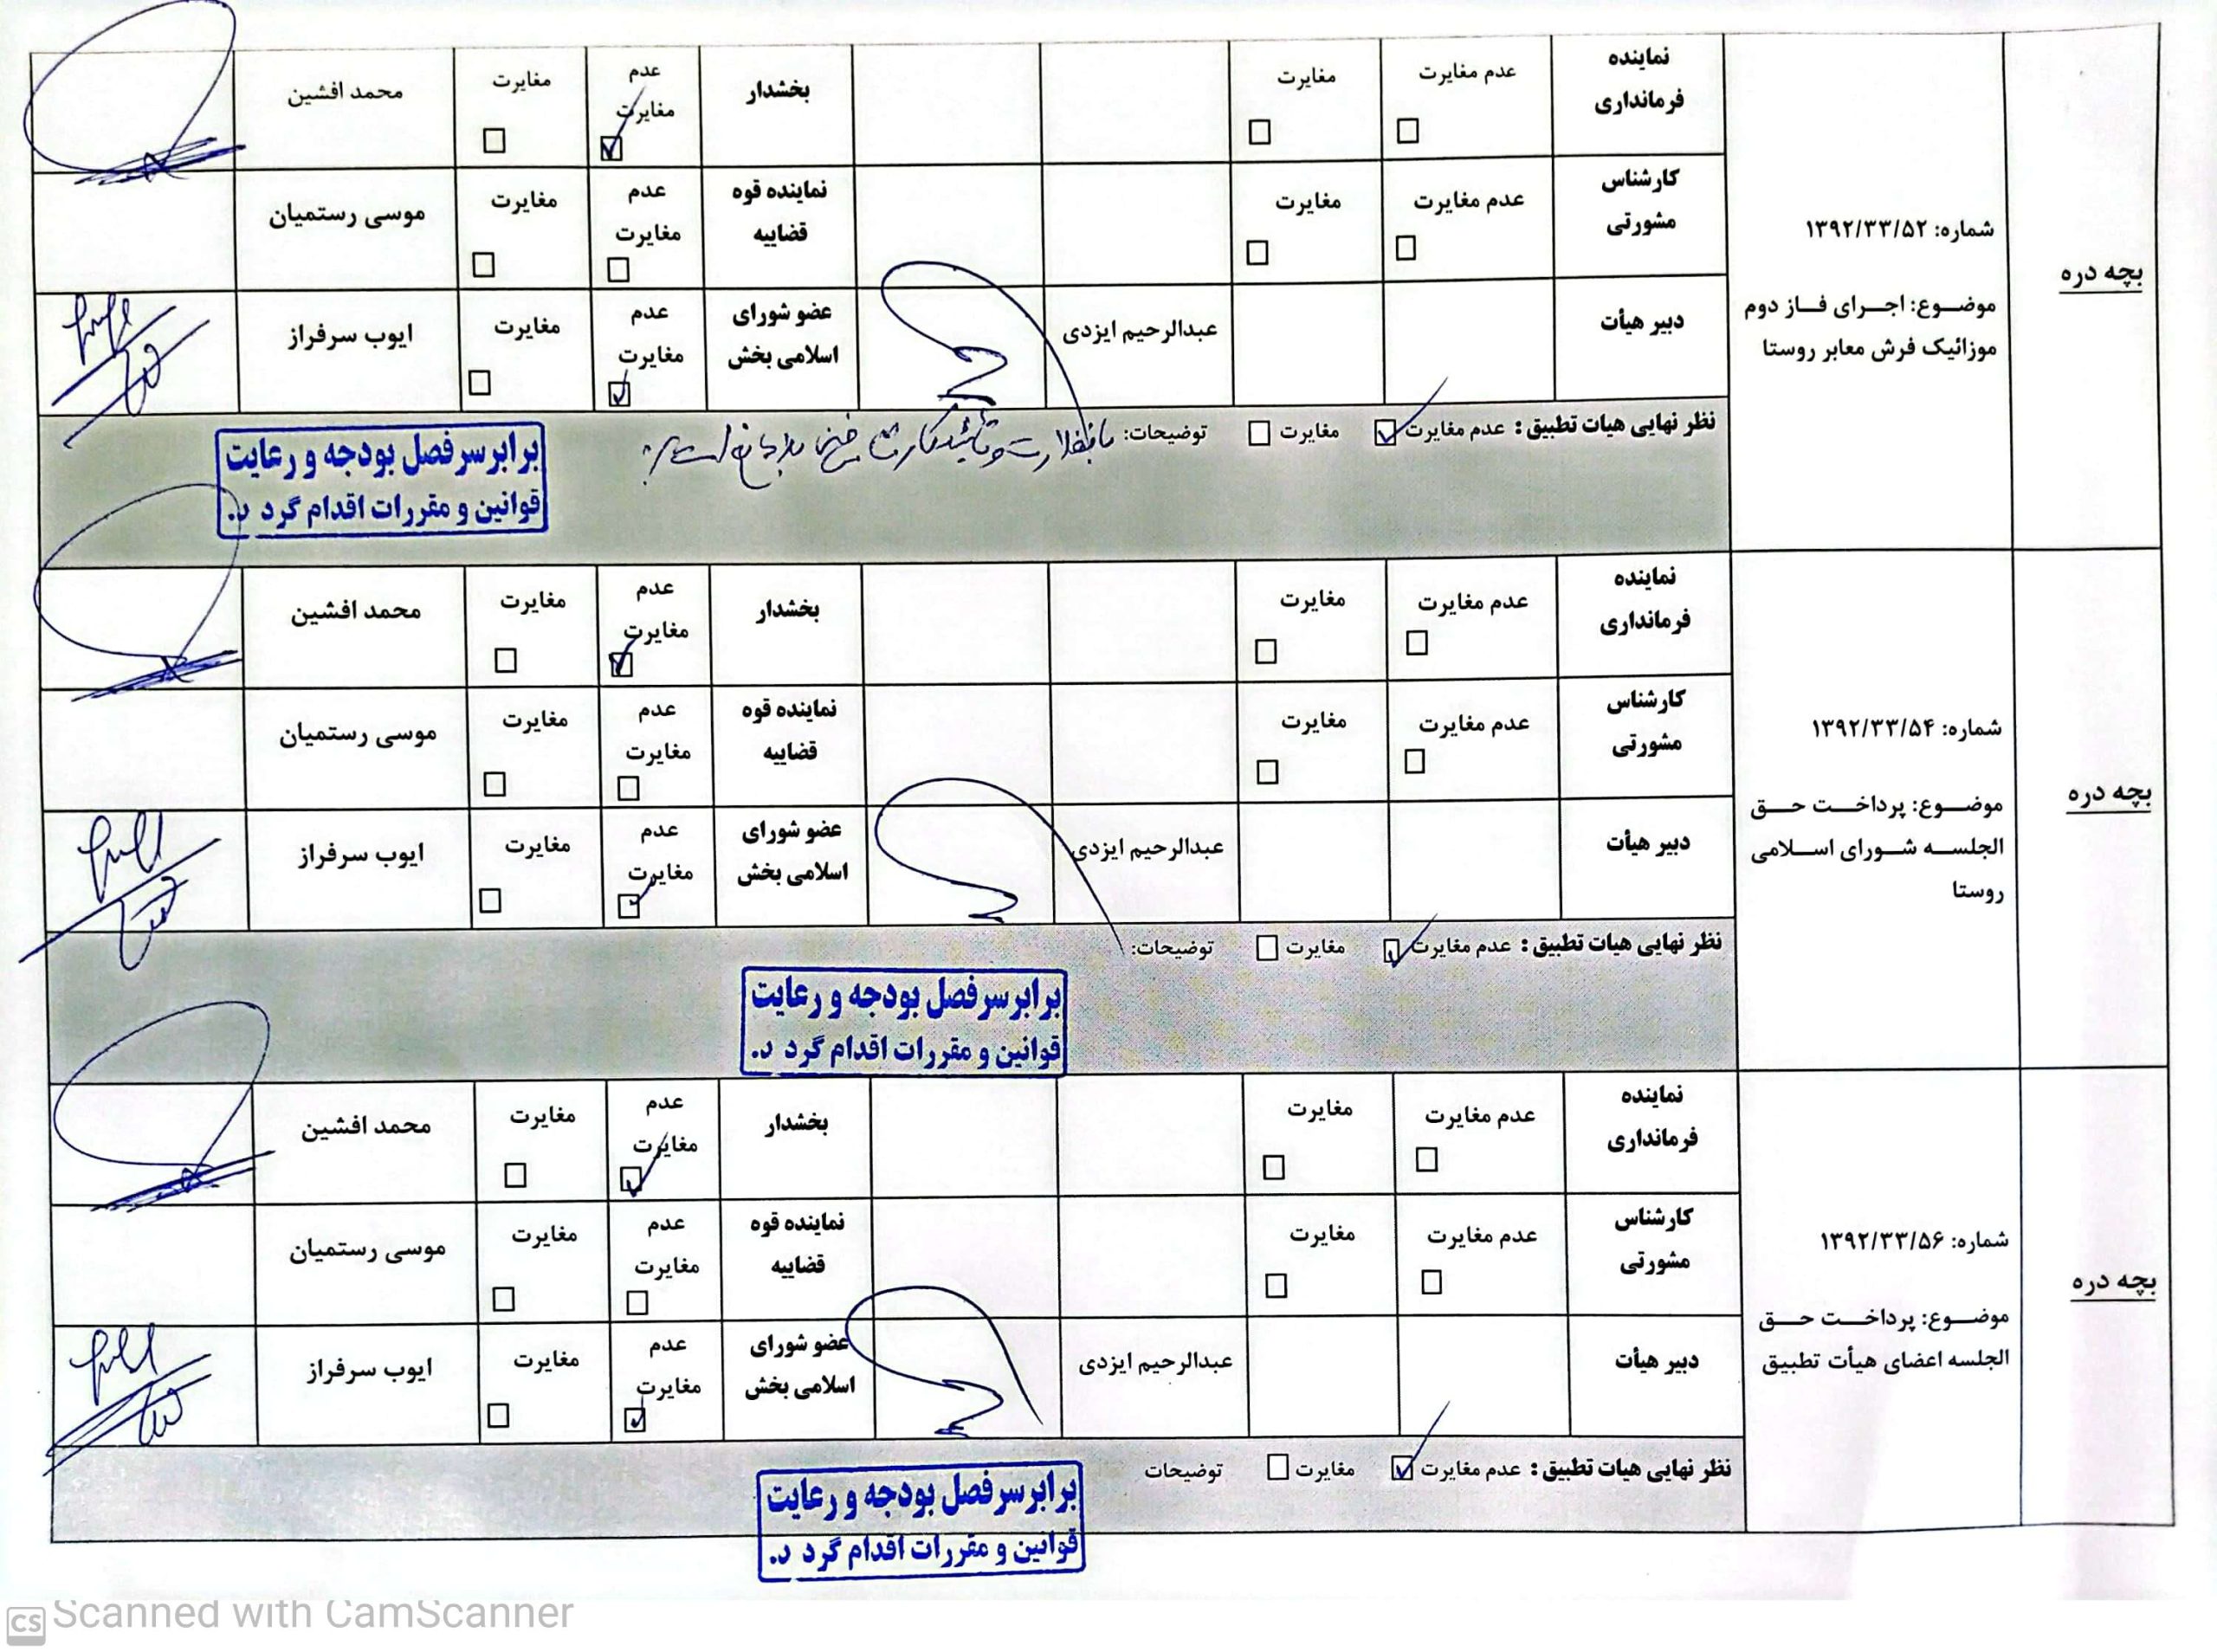 بچه دره
شماره: ۱۳۹۲/۳۳/۵۲
موضوع: اجرای فاز دوم
موزائیک فرش معابر روستا
نماینده
فرمانداری
عدم مغایرت
مغایرت
بخشدار
عدم
مغایرت
مغایرت
محمد افشین
کارشناس
مشورتی
عدم مغایرت
مغایرت
نماینده قوه
قضاییه
عدم
مغایرت
مغایرت
موسی رستمیان
دبیر هیأت
عبدالرحیم ایزدی
عضو شورای
اسلامی بخش
عدم
مغایرت
مغایرت
ایوب سرفراز
نظر نهایی هیات تطبیق: عدم مغایرت مغایرت توضیحات:
برابر سرفصل بودجه و رعایت
قوانین و مقررات اقدام گردد.
بچه دره
شماره: ۱۳۹۲/۳۳/۵۴
موضوع: پرداخت حق
الجلسه شورای اسلامی
روستا
نماینده
فرمانداری
عدم مغایرت
مغایرت
بخشدار
عدم
مغایرت
مغایرت
محمد افشین
کارشناس
مشورتی
عدم مغایرت
مغایرت
نماینده قوه
قضاییه
عدم
مغایرت
مغایرت
موسی رستمیان
دبیر هیأت
عبدالرحیم ایزدی
عضو شورای
اسلامی بخش
عدم
مغایرت
مغایرت
ایوب سرفراز
نظر نهایی هیات تطبیق: عدم مغایرت مغایرت توضیحات:
برابر سرفصل بودجه و رعایت
قوانین و مقررات اقدام گردد.
بچه دره
شماره: ۱۳۹۲/۳۳/۵۶
موضوع: پرداخت حق
الجلسه اعضای هیأت تطبیق
نماینده
فرمانداری
عدم مغایرت
مغایرت
بخشدار
عدم
مغایرت
مغایرت
محمد افشین
کارشناس
مشورتی
عدم مغایرت
مغایرت
نماینده قوه
قضاییه
عدم
مغایرت
مغایرت
موسی رستمیان
دبیر هیأت
عبدالرحیم ایزدی
عضو شورای
اسلامی بخش
عدم
مغایرت
مغایرت
ایوب سرفراز
نظر نهایی هیات تطبیق: عدم مغایرت مغایرت توضیحات
برابر سرفصل بودجه و رعایت
قوانین و مقررات اقدام گردد.
CS Scanned with CamScanner